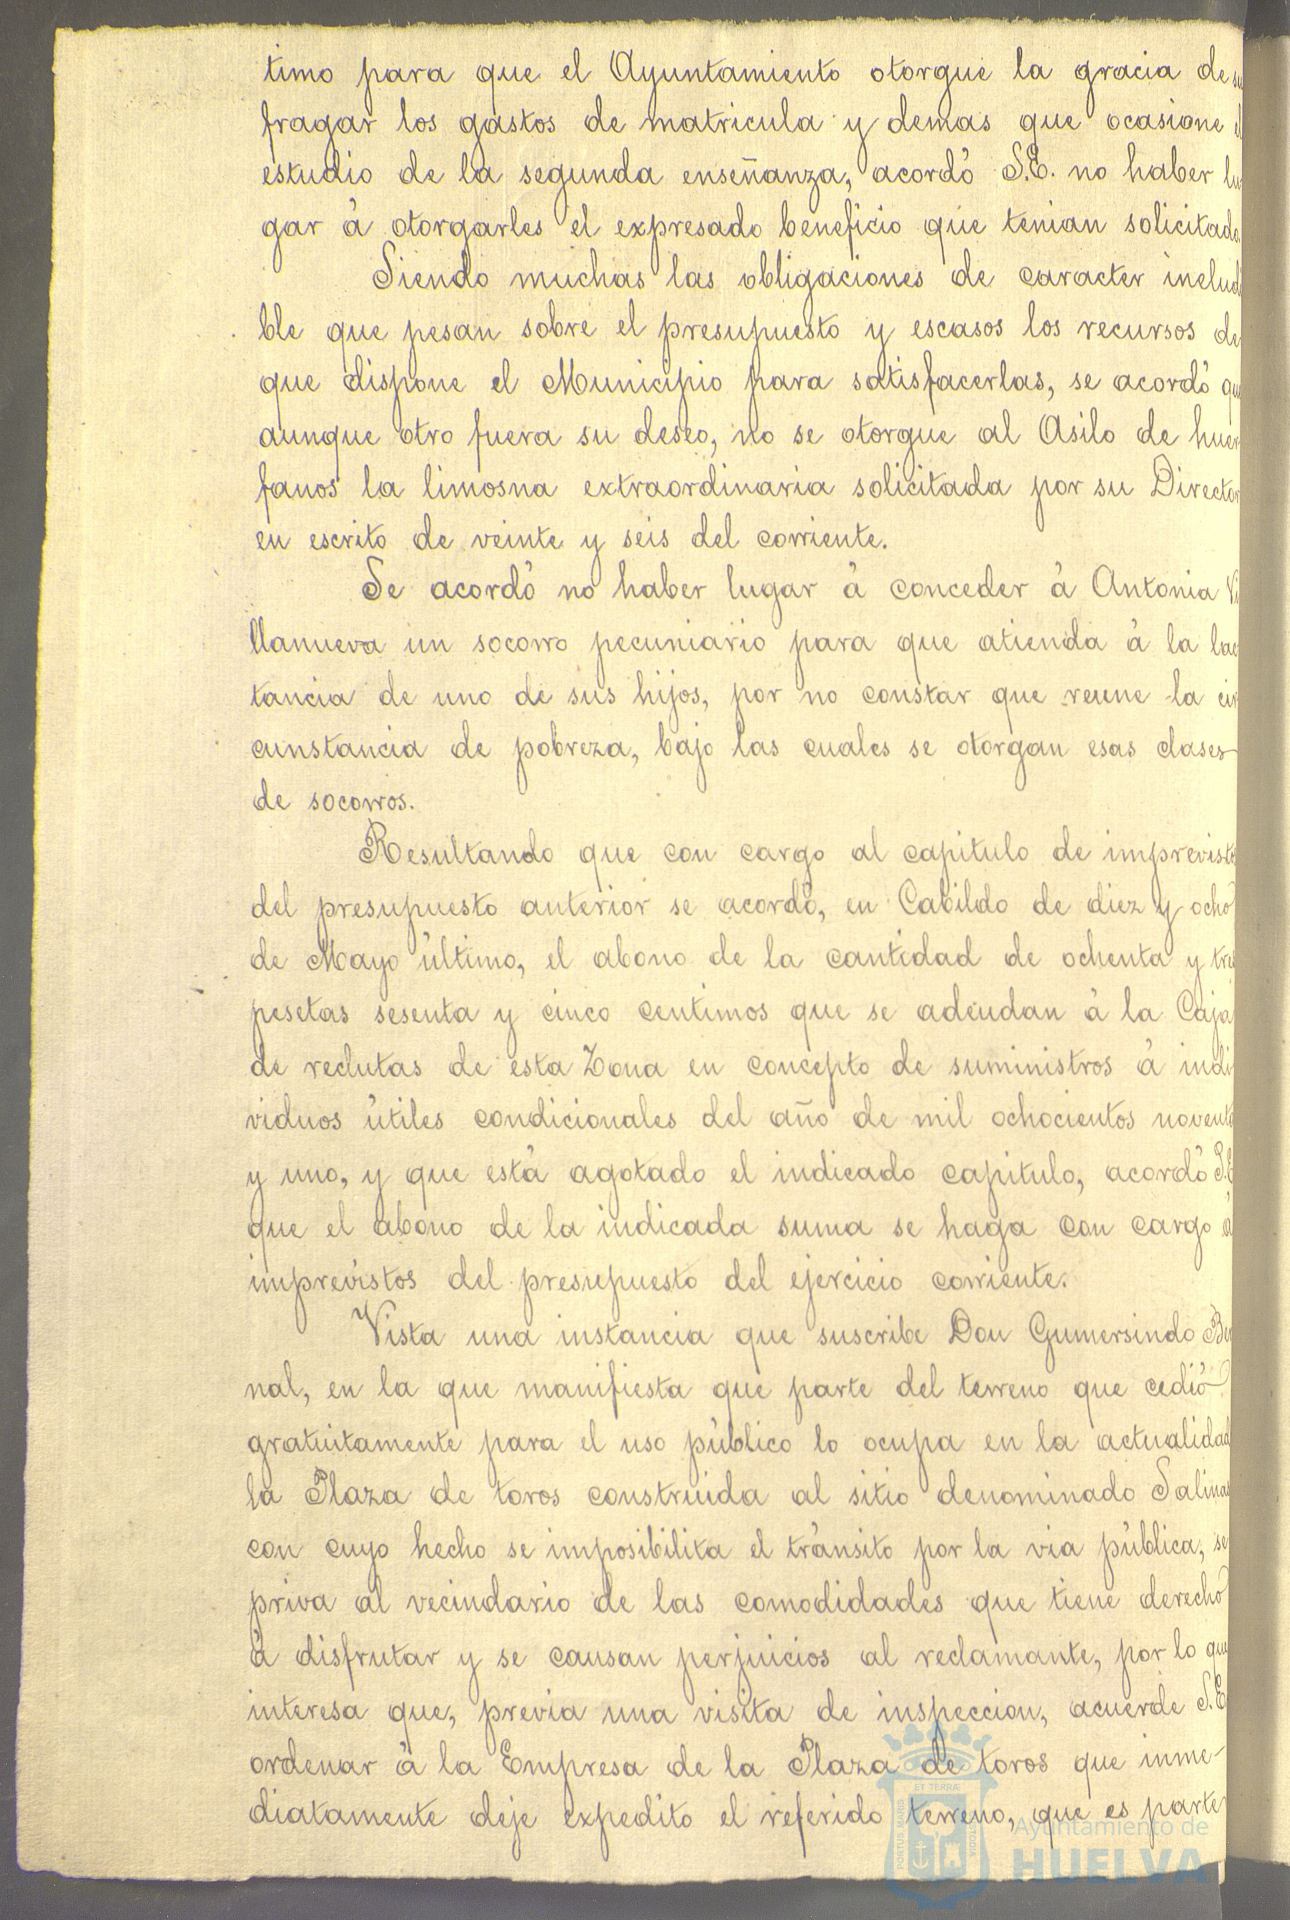 timo para que el Ayuntamiento otorgue la gracia de su
fragar los gastos de matricula y demas que ocasione el
estudio de la segunda enseñanza, acordó S.E. no haber lu
gar á otorgarles el expresado beneficio que tenian solicitado.
Siendo muchas las obligaciones de caracter inelud
ble que pesan sobre el presupuesto y escasos los recursos de
que dispone el Municipio para satisfacerlas, se acordó que
aunque otro fuera su deseo, no se otorgue al Asilo de huer
fanos la limosna extraordinaria solicitada por su Director
en escrito de veinte y seis del corriente.
Se acordó no haber lugar á conceder á Antonia Vi
llanueva un socorro pecuniario para que atienda á la lac
tancia de uno de sus hijos, por no constar que reune la cir
cunstancia de pobreza, bajo las cuales se otorgan esas clases
de socorros.
Resultando que con cargo al capitulo de imprevistos
del presupuesto anterior se acordó, en Cabildo de diez y ocho
de Mayo último, el abono de la cantidad de ochenta y tres
pesetas sesenta y cinco centimos que se adeudan á la Caja
de reclutas de esta Zona en concepto de suministros á indi
viduos útiles condicionales del año de mil ochocientos noventa
y uno, y que está agotado el indicado capitulo, acordó S.E.
que el abono de la indicada suma se haga con cargo á
imprevistos del presupuesto del ejercicio corriente.
Vista una instancia que suscribe Don Gumersindo Ber
nal, en la que manifiesta que parte del terreno que cedió
gratuitamente para el uso público lo ocupa en la actualidad
la Plaza de toros construida al sitio denominado Salinas
con cuyo hecho se imposibilita el tránsito por la via pública, se
priva al vecindario de las comodidades que tiene derecho
á disfrutar y se causan perjuicios al reclamante, por lo que
interesa que, previa una visita de inspeccion, acuerde S.E.
ordenar á la Empresa de la Plaza de toros que inme-
diatamente deje expedito el referido terreno, que es parte
PORTUS MARIS ET TERRÆ CUSTODIA
Ayuntamiento de
HUELVA